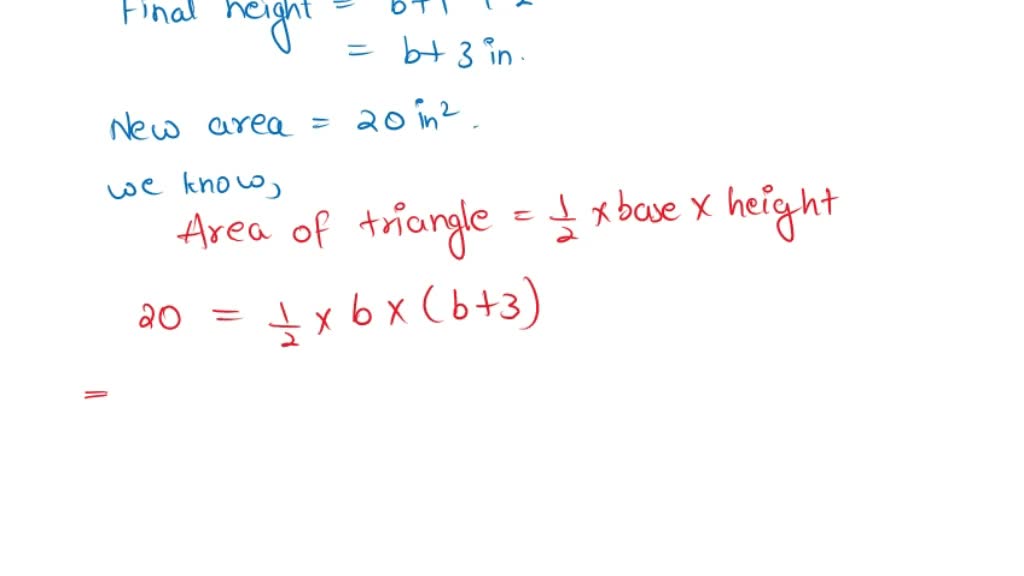 Final height = b+1+2
= b+3 in.
New area = 20 in².
we know,
Area of triangle = 1/2 x base x height
20 = 1/2 x b x (b+3)
=